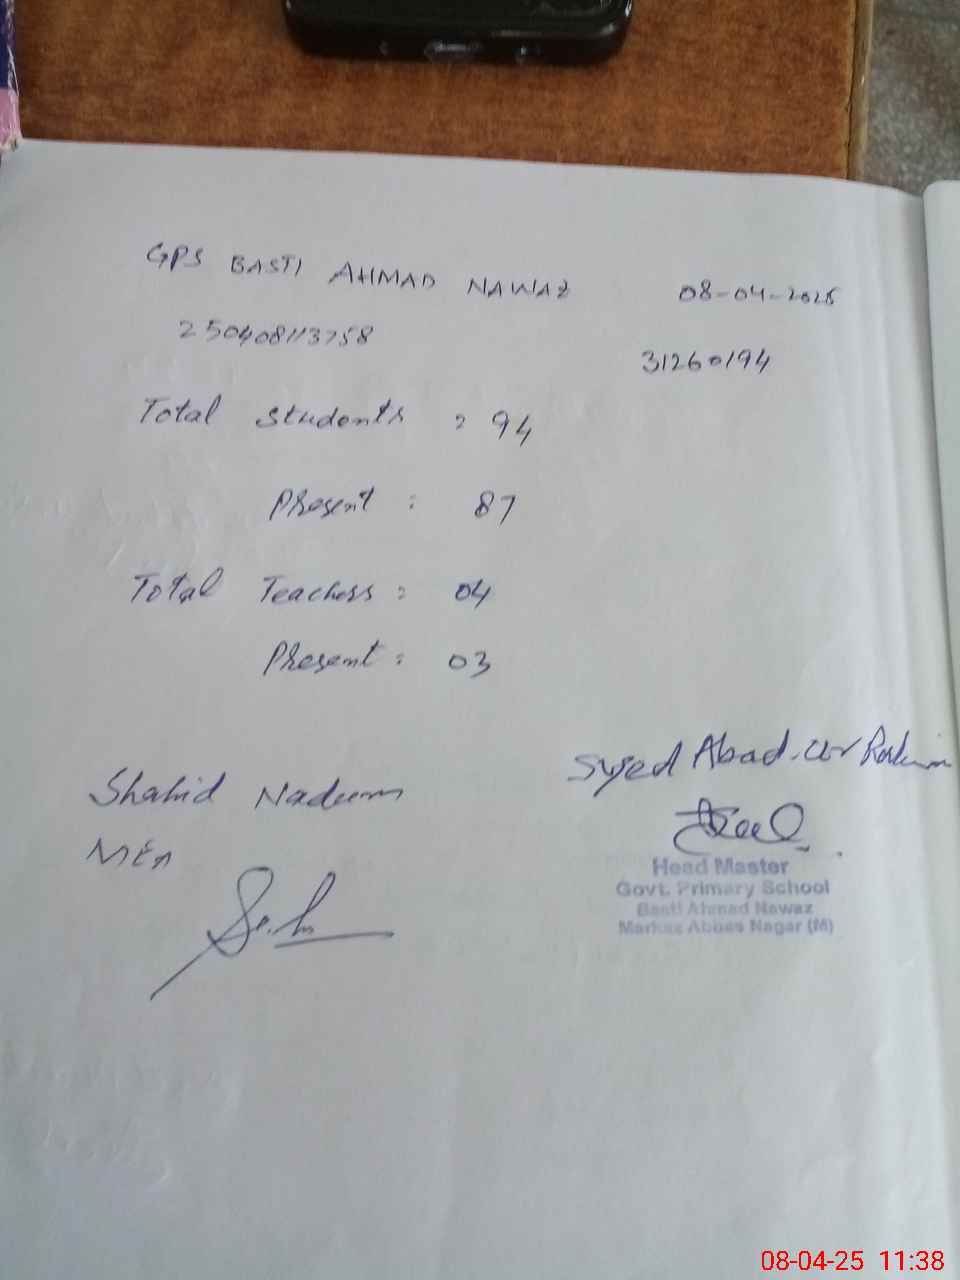 GPS BASTI AHMAD NAWAZ 08-04-2025
250408113758
31260194
Total Students : 94
Present : 87
Total Teachers : 04
Present : 03
Syed Abad-ur Rahim
Shahid Nadeem
MEA
Head Master
Govt. Primary School
Basti Ahmad Nawaz
Markaz Abbas Nagar (M)
08-04-25 11:38